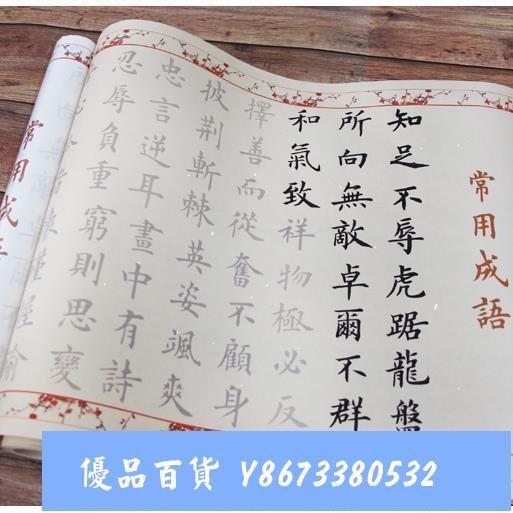 常用成語
知足不辱虎踞龍盤
所向無敵卓爾不群
和氣致祥物極必反
擇善而從奮不顧身
披荆斬棘英姿颯爽
忠言逆耳畫中有詩
忍辱負重窮則思變
常用成
優品百貨 Y8673380532